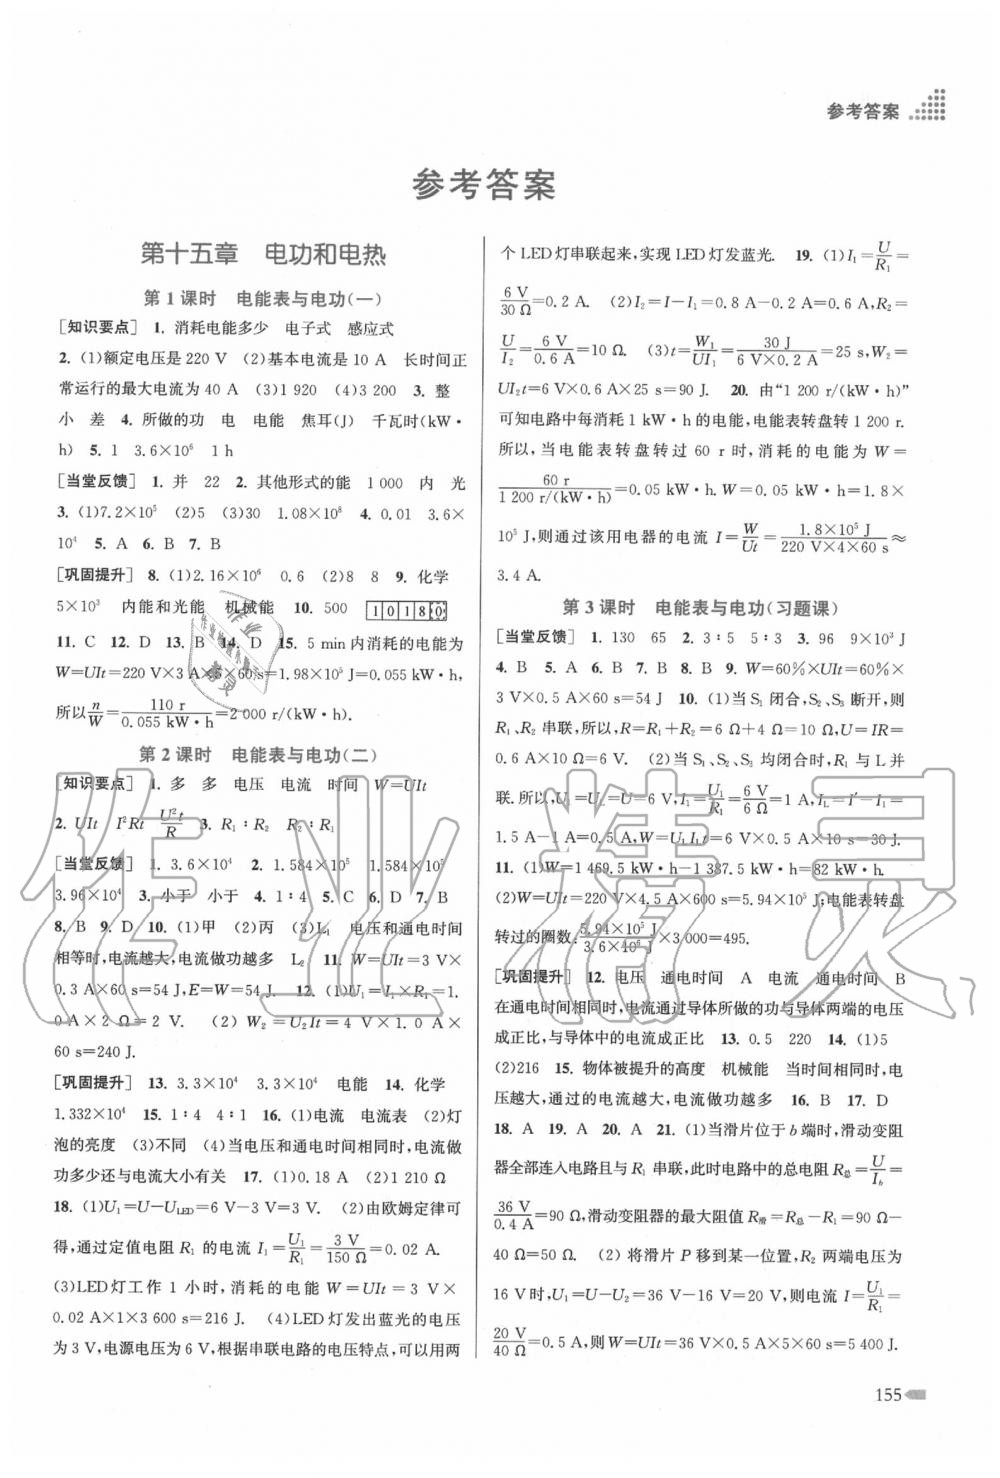 参考答案
参考答案
第十五章 电功和电热
第1课时 电能表与电功(一)
[知识要点] 1. 消耗电能多少 电子式 感应式
2. (1)额定电压是 220 V (2)基本电流是 10 A 长时间正
常运行的最大电流为 40 A (3)1 920 (4)3 200 3. 整
小 差 4. 所做的功 电 电能 焦耳(J) 千瓦时(kW·
h) 5. 1 3.6×10⁶ 1 h
[当堂反馈] 1. 并 22 2. 其他形式的能 1 000 内 光
3. (1)7.2×10⁵ (2)5 (3)30 1.08×10⁸ 4. 0.01 3.6×
10⁴ 5. A 6. B 7. B
[巩固提升] 8. (1)2.16×10⁶ 0.6 (2)8 8 9. 化学
5×10³ 内能和光能 机械能 10. 500 1 0 1 8 0
11. C 12. D 13. B 14. D 15. 5 min内消耗的电能为
W=UIt=220 V×3 A×5×60 s=1.98×10⁵ J=0.055 kW·h,
所以n/W=110 r/0.055 kW·h=2 000 r/(kW·h).
第2课时 电能表与电功(二)
[知识要点] 1. 多 多 电压 电流 时间 W=UIt
2. UIt I²Rt U²t/R 3. R₁∶R₂ R₂∶R₁
[当堂反馈] 1. 3.6×10⁴ 2. 1.584×10⁵ 1.584×10⁵
3.96×10⁴ 3. 小于 小于 4. 1∶4 5. C 6. D 7. B
8. B 9. D 10. (1)甲 (2)丙 (3)L₁ 电压和通电时间
相等时,电流越大,电流做功越多 L₂ 11. W=UIt=3 V×
0.3 A×60 s=54 J,E=W=54 J. 12. (1)U₁=I₁×R₁=1.
0 A×2 Ω=2 V. (2) W₂=U₂It=4 V×1.0 A×
60 s=240 J.
[巩固提升] 13. 3.3×10⁴ 3.3×10⁴ 电能 14. 化学
1.332×10⁴ 15. 1∶4 4∶1 16. (1)电流 电流表 (2)灯
泡的亮度 (3)不同 (4)当电压和通电时间相同时,电流做
功多少还与电流大小有关 17. (1)0.18 A (2)1 210 Ω
18. (1)U₁=U−U_LED=6 V−3 V=3 V. (2)由欧姆定律可
得,通过定值电阻 R₁ 的电流 I₁=U₁/R₁=3 V/150 Ω=0.02 A.
(3)LED灯工作 1 小时,消耗的电能 W=UIt=3 V×
0.02 A×1×3 600 s=216 J. (4)LED灯发出蓝光的电压
为 3 V,电源电压为 6 V,根据串联电路的电压特点,可以用两
个LED灯串联起来,实现LED灯发蓝光. 19. (1)I₁=U/R₁=
6 V/30 Ω=0.2 A. (2)I₂=I−I₁=0.8 A−0.2 A=0.6 A,R₂=
U/I₂=6 V/0.6 A=10 Ω. (3)t=W₁/UI₁=30 J/6 V×0.2 A=25 s,W₂=
UI₂t=6 V×0.6 A×25 s=90 J. 20. 由“1 200 r/(kW·h)”
可知电路中每消耗 1 kW·h的电能,电能表转盘转 1 200 r.
所以,当电能表转盘转过 60 r 时,消耗的电能 W=
60 r/1 200 r/(kW·h)=0.05 kW·h. W=0.05 kW·h=1.8×
10⁵ J,则通过该用电器的电流 I=W/Ut=1.8×10⁵ J/220 V×4×60 s≈
3.4 A.
第3课时 电能表与电功(习题课)
[当堂反馈] 1. 130 65 2. 3∶5 5∶3 3. 96 9×10³ J
4. B 5. A 6. B 7. B 8. B 9. W=60%×UIt=60%×
3 V×0.5 A×60 s=54 J 10. (1)当 S₁ 闭合,S₂、S₃ 断开,则
R₁、R₂ 串联,所以,R=R₁+R₂=6 Ω+4 Ω=10 Ω,U=IR=
0.6 A×10 Ω=6 V (2)当 S₁、S₂、S₃ 均闭合时,R₁ 与 L 并
联.所以,U₁=U_L=U=6 V,I₁=U₁/R₁=6 V/6 Ω=1 A,I_L=I′−I₁=
1.5 A−1 A=0.5 A,W=U_LI_Lt=6 V×0.5 A×10 s=30 J.
11. (1)W=1 469.5 kW·h−1 387.5 kW·h=82 kW·h.
(2)W=UIt=220 V×4.5 A×600 s=5.94×10⁵ J;电能表转盘
转过的圈数:5.94×10⁵ J/3.6×10⁶ J×3 000=495.
[巩固提升] 12. 电压 通电时间 A 电流 通电时间 B
在通电时间相同时,电流通过导体所做的功与导体两端的电压
成正比、与导体中的电流成正比 13. 0.5 220 14. (1)5
(2)216 15. 物体被提升的高度 机械能 当时间相同时,电
压越大,通过的电流越大,电流做功越多 16. B 17. D
18. A 19. A 20. A 21. (1)当滑片位于 b 端时,滑动变阻
器全部连入电路且与 R₁ 串联,此时电路中的总电阻 R总=U/I_b=
36 V/0.4 A=90 Ω,滑动变阻器的最大阻值 R滑=R总−R₁=90 Ω−
40 Ω=50 Ω. (2) 将滑片 P 移到某一位置,R₂ 两端电压为
16 V时,U₁=U−U₂=36 V−16 V=20 V,则电流 I=U₁/R₁=
20 V/40 Ω=0.5 A,则 W=UIt=36 V×0.5 A×5×60 s=5 400 J.
155
作业精灵